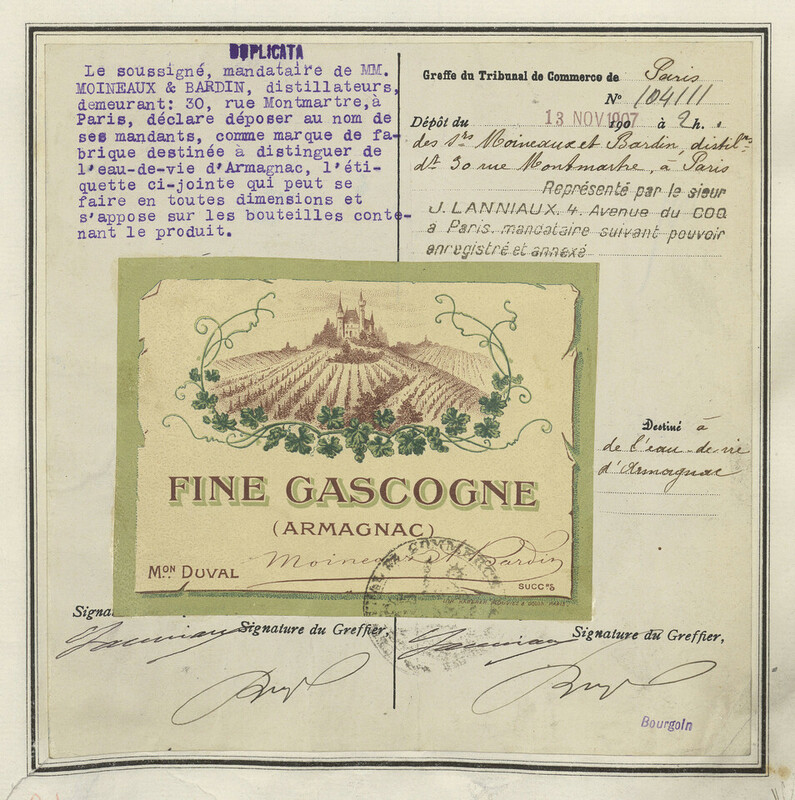 DUPLICATA
Le soussigné, mandataire de MM.
MOINEAUX & BARDIN, distillateurs,
demeurant: 30, rue Montmartre,à
Paris, déclare déposer au nom de
ses mandants, comme marque de fa-
brique destinée à distinguer de
l'eau-de-vie d'Armagnac, l'éti-
quette ci-jointe qui peut se
faire en toutes dimensions et
s'appose sur les bouteilles conte-
nant le produit.
Greffe du Tribunal de Commerce de Paris
No 104111
Dépôt du 13 NOV 1907 190 à 2 h.
des Srs Moineaux et Bardin, distilrs
dt 30 rue Montmartre, à Paris
Représenté par le sieur
J. LANNIAUX. 4. Avenue du COQ
a Paris. mandataire suivant pouvoir
enregistré et annexé
Destiné à
de l'eau-de-vie
d'Armagnac
FINE GASCOGNE
(ARMAGNAC)
Moineaux & Bardin
MON DUVAL
SUCCRS
TRIBUNAL DE COMMERCE
Signa
Signature du Greffier,
Signature du Greffier,
Bourgoin